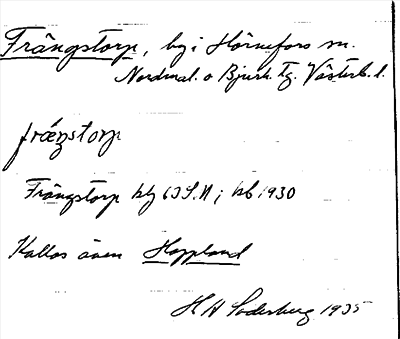 Frängstorp, by i Hörnefors sn.
Nordmal. o Bjurh. tg. Västerb. l.
fræŋstorp
Frängstorp kbg 63 S.N; kb 1930
Kallas även Hoppland
H H Söderberg 1935